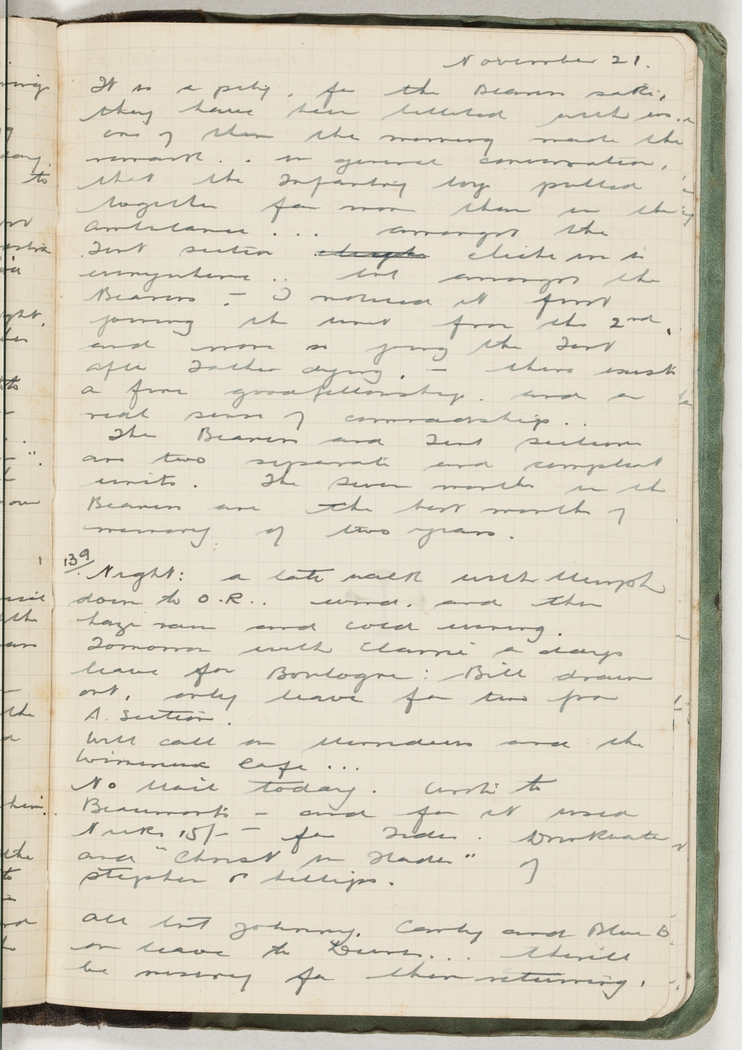 November 21.
It is a pity, for the Bearers sake,
they have been billeted with us..
one of them this morning made the
remark .. in general conversation,
that the Infantry boys pulled
together far more than in the
Ambulance ... amongst the
Tent section cliche in is
everywhere .. but amongst the
Bearers – I noticed it first
joining the unit from the 2nd,
and more so joing the Tent
after Father dying, – there exists
a fine goodfellowship, and a
real sense of comradeship ..
The Bearers and Tent sections
are two separate and complete
units. The seven months in the
Bearers are the best months of
memory of two years.
139
Night: a late walk with Murph
down to O.R.. wind, and thin
hazy rain and cold evening.
Tomorrow with Clarrie a days
leave for Boulogne: Bill drawn
out, only leave for two from
A. Section.
Will call on and the
Wimereux Cafe ...
No Mail today. Wrote to
Beaumonts – and for it used
15/- – for
and "Christ in Hades" of
Stephen Phillips.
All but Johnny, Carly and Blue B
on leave to ... they'll
be misery for them returning.